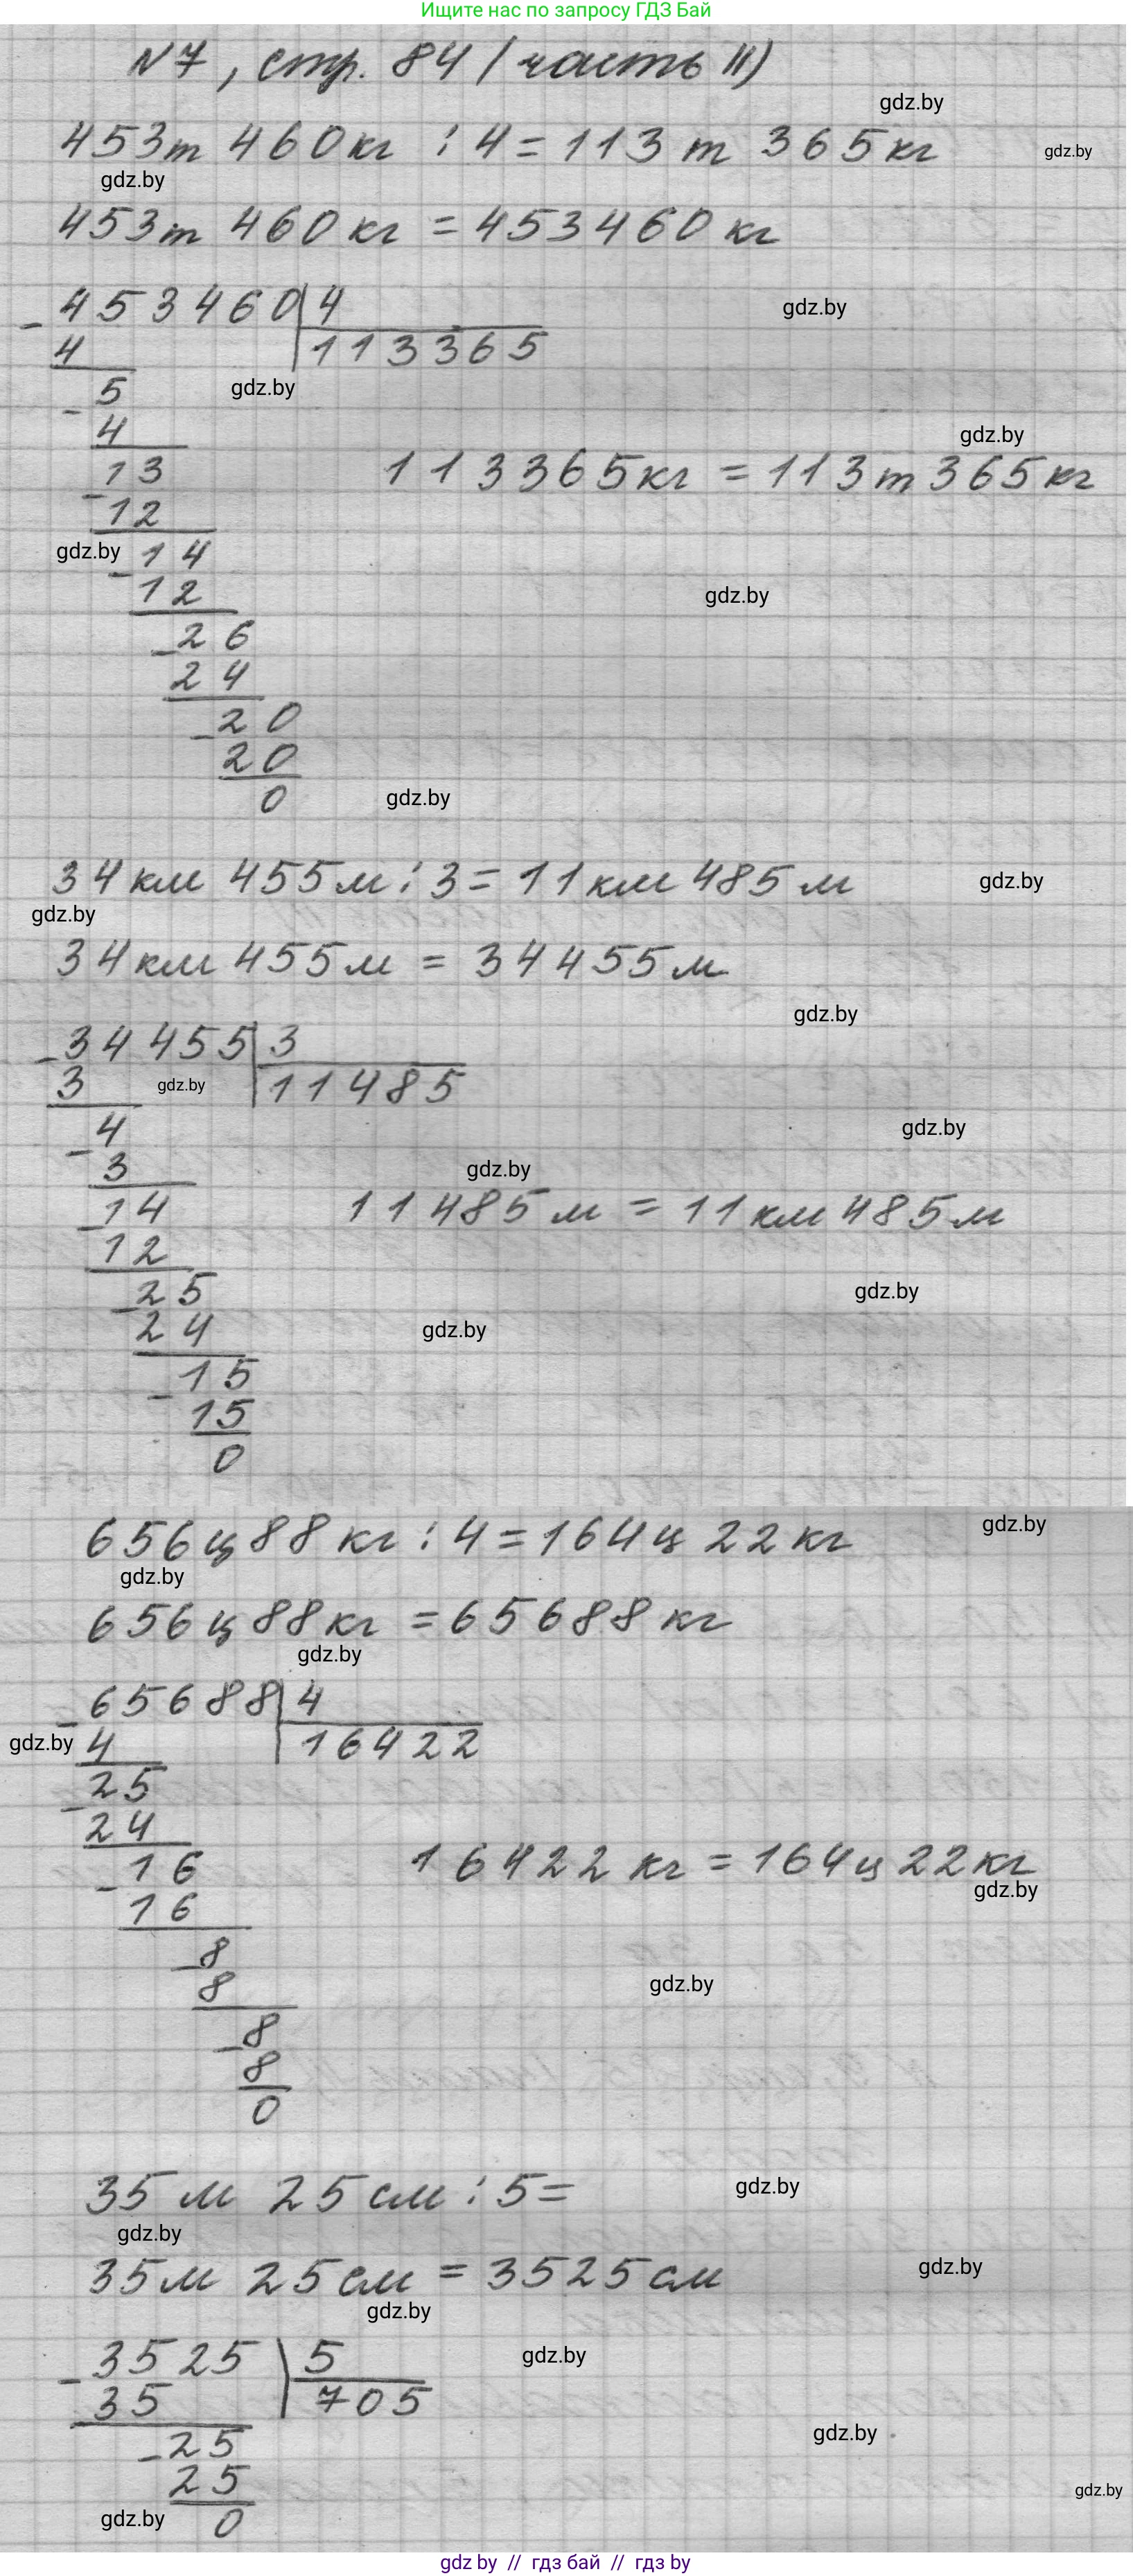 Ищите нас по запросу ГДЗ Бай
№7, стр. 84 (часть II)
gdz.by
453т 460кг : 4 = 113 т 365кг
gdz.by
gdz.by
453т 460 кг = 453460 кг
453460 4
gdz.by
4 113365
5
gdz.by
4
gdz.by
13
113365кг = 113т 365кг
12
gdz.by
14
12
gdz.by
26
24
20
20
0
gdz.by
34км 455м : 3 = 11км 485м
gdz.by
gdz.by
34км 455м = 34455м
gdz.by
34455 3
3 11485
gdz.by
4
gdz.by
3
gdz.by
14
11485м = 11км 485м
12
25
gdz.by
24
gdz.by
15
15
0
656ц 88 кг : 4 = 164ц 22кг
gdz.by
gdz.by
656ц 88кг = 65688 кг
gdz.by
65688 4
4 16422
gdz.by
25
24
16
16422 кг = 164ц 22кг
gdz.by
16
8
8
gdz.by
8
8
0
35 м 25см : 5 =
gdz.by
gdz.by
35м 25см = 3525см
gdz.by
gdz.by
3525 5
gdz.by
35 705
25
gdz.by
25
gdz.by
0
gdz.by
gdz by // гдз бай // гдз by